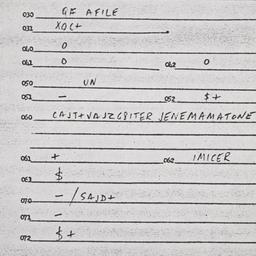 030 GE AFILE
031 XOC+
040 0
041 0 042 0
050 UN
051 - 052 $+
060 CAJT+VAJZCBITER JENEMAMATONE
061 + 062 IMICER
063 $
070 - / SAJD+
071 -
072 $+